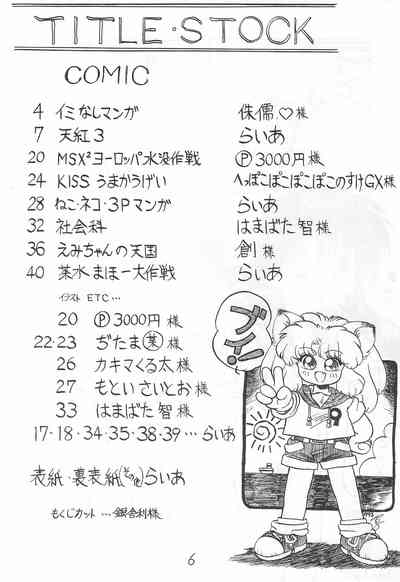 TITLE・STOCK
COMIC
4 イミなしマンガ 侏儒.♡様
7 天紅3 らいあ
20 MSX²ヨーロッパ水没作戦 Ⓟ3000円様
24 KISSうまかうげい へっぽこぽこぽこぽこのすけGX様
28 ねこ・ネコ・3Pマンガ らいあ
32 社会科 はまばた智様
36 えみちゃんの天国 創様
40 葉水まほー大作戦 らいあ
イラスト ETC…
20 Ⓟ3000円様
22・23 ぢたま㊎様
26 カキマくる太様
27 もといさいとお様
33 はまばた智様
17・18・34・35・38・39…らいあ
表紙・裏表紙(その他)らいあ
もくじカット…銀舎利様
ブイ!
6